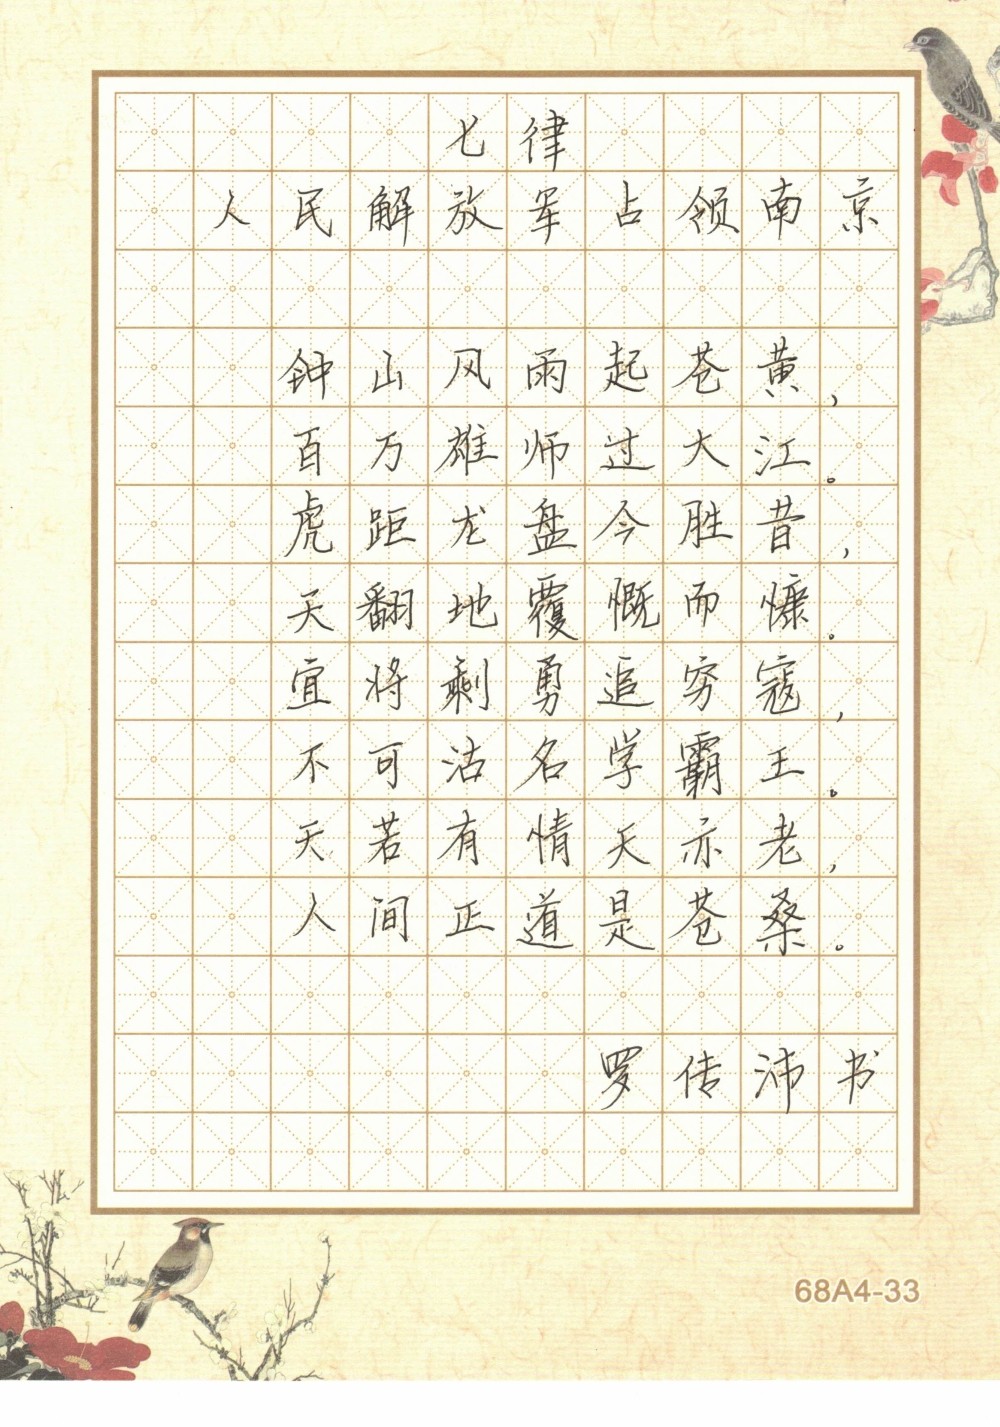 七律
人民解放军占领南京
钟山风雨起苍黄，
百万雄师过大江。
虎距龙盘今胜昔，
天翻地覆慨而慷。
宜将剩勇追穷寇，
不可沽名学霸王。
天若有情天亦老，
人间正道是苍桑。
罗传沛书
68A4-33